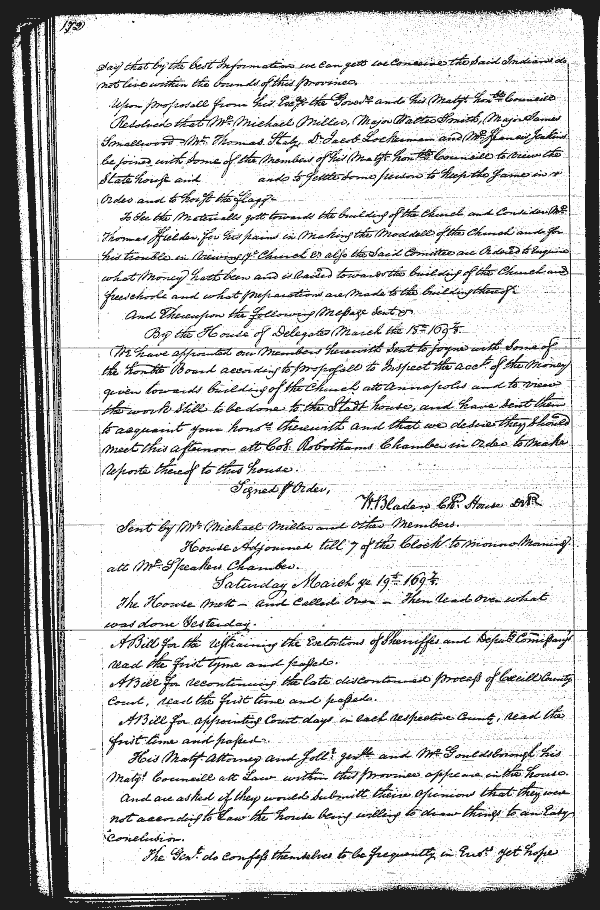 172
Say that by the best Information we can gett we Conceive the Said Indians do
not live within the bounds of this Province.
Upon proposall from his Excy the Govr. and his Matys honble Councill
Resolved that Mr. Michael Miller, Major Walter Smith, Major James
Smallwood Mr. Thomas Staly, Dr. Jacob Lockerman and Mr. Francis Jenkins
be joined with Some of the Members of his Matys honble Councill to view the
State house and and to Settle Some person to keep the Same in
Order and to hoist the flagg.
To See the Materialls gott towards the building of the Church and Consider Mr.
Thomas ffielder, for his pains in making the Moddell of the Church and for
his trouble in viewing ye Church & also the Said Comittee are Ordered to Enquire
what Money hath been and is raised towards the building of the Church and
freeschoole and what preparations are made to the building thereof.
And Thereupon the following Message Sent
By the House of Delegates March the 18th 1697/8.
We have appointed our Members herewith Sent to joyne with Some of
the honble Board according to proposall to Inspect the acct. of the Money
given towards building of the Church att Annapolis and to view
the work Still to be done to the Stadt house, and have Sent them
to acquaint your honrs. therewith and that we desire they Should
meet this afternoon att Col. Robothams Chamber in Order to make
reporte thereof to this house.
Signed p Order,
W. Bladen Clk. House Del.
Sent by Mr. Michael Miller and other Members.
House Adjourned till 7 of the Clock to morrow Morning
att Mr. Speakers Chamber.
Saturday March ye 19th 1697/8.
The House mett - and called Over - Then read over what
was done Yesterday.
A Bill for the restraining the Extortions of Sherriffes and Depty Comissarys
read the first tyme and passed.
A Bill for recontinuing the late discontinued process of Cecill County
Court, read the first time and passed.
A Bill for appointing Court days in each respective County, read the
first time and passed.
His Matys Attorney and Sollr. genll. and Mr. Gouldsborough his
Matys. Councill att Law within this Province appeare in the house.
And are asked if they would Submitt theire Opinion that they were
not according to Law the house being willing to draw things to an Easy
Conclusion.
The Gent. do confess themselves to be frequently in Err. yet hope